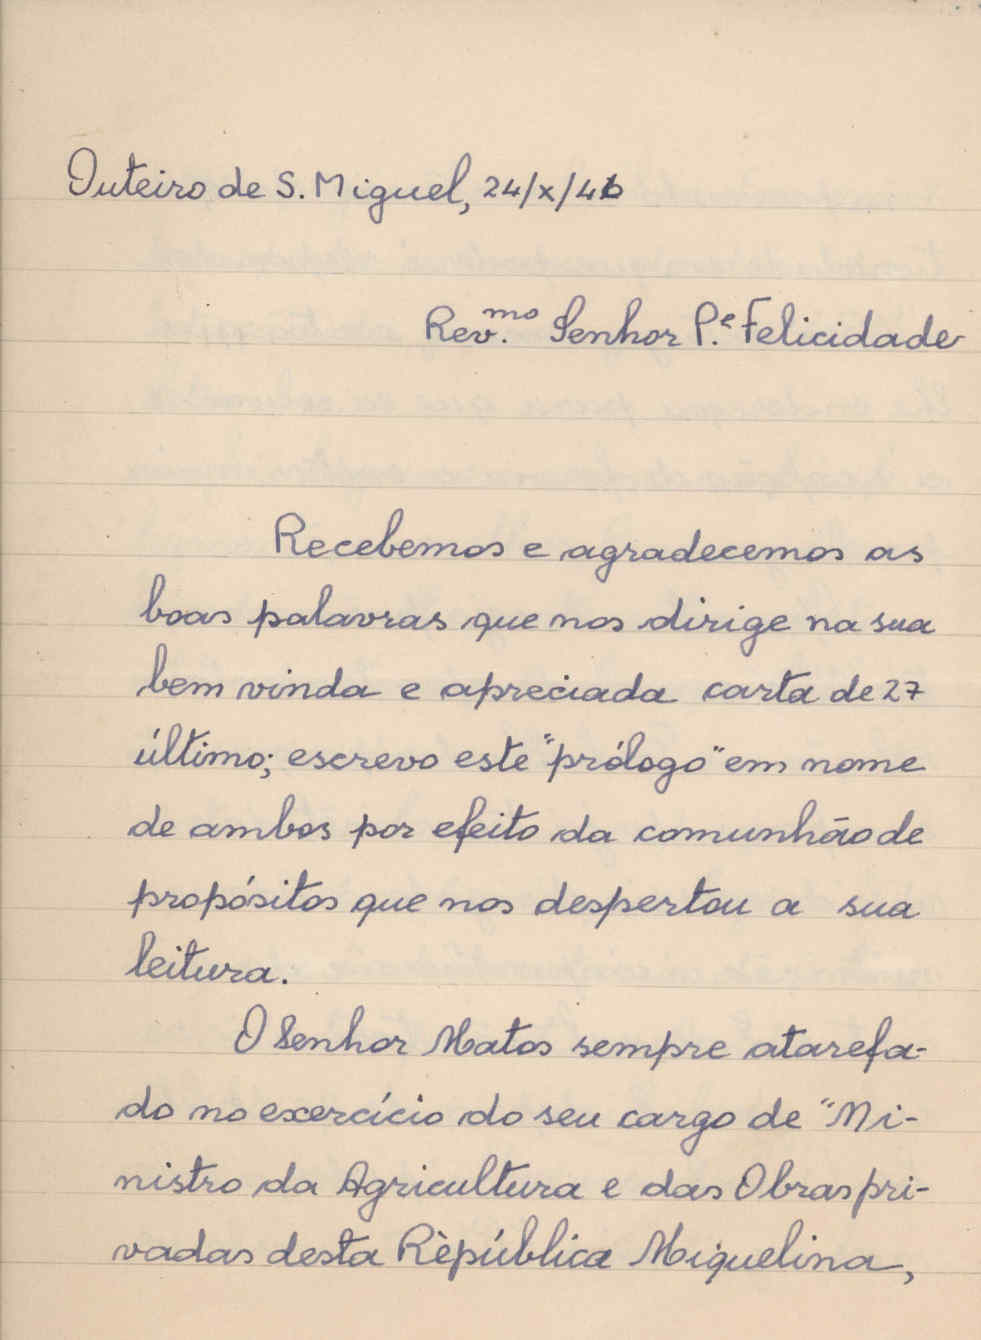 Outeiro de S. Miguel, 24/X/46
Rev.mo Senhor P.e Felicidade
Recebemos e agradecemos as
boas palavras que nos dirige na sua
bem vinda e apreciada carta de 27
último; escrevo este "prólogo" em nome
de ambos por efeito da comunhão de
propósitos que nos despertou a sua
leitura.
O Senhor Matos sempre atarefa-
do no exercício do seu cargo de "Mi-
nistro da Agricultura e das Obras pri-
vadas desta Rèpública Miguelina,